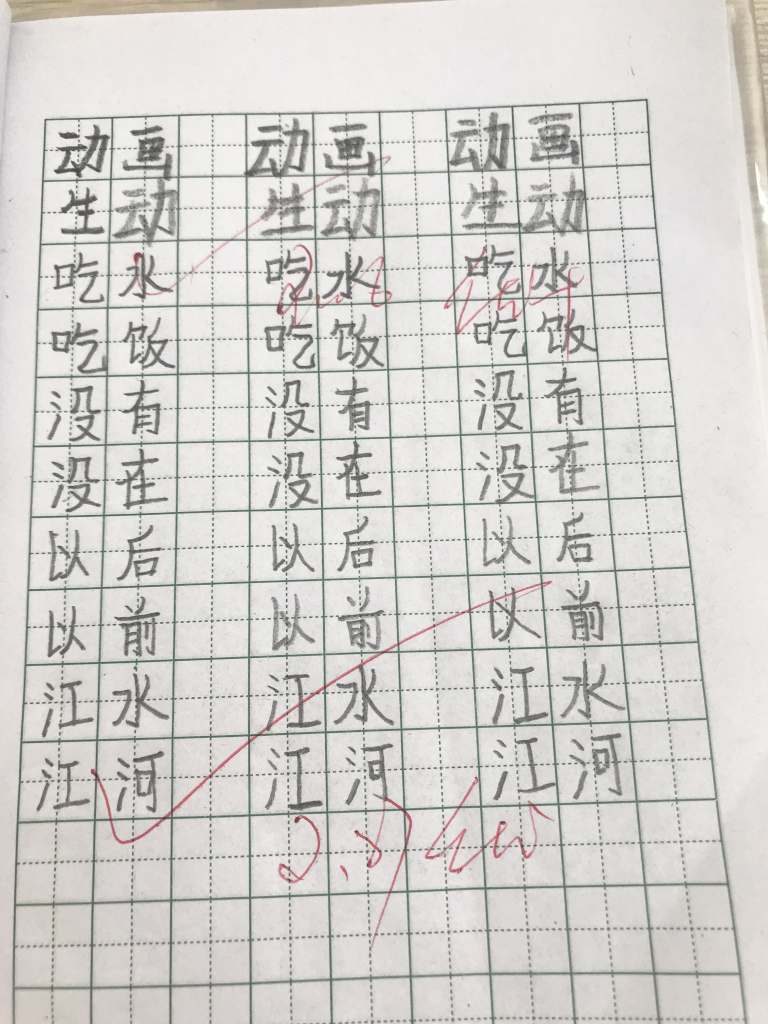 动画 动画 动画
生动 生动 生动
吃水 吃水 吃水
吃饭 吃饭 吃饭
没有 没有 没有
没在 没在 没在
以后 以后 以后
以前 以前 以前
江水 江水 江水
江河 江河 江河